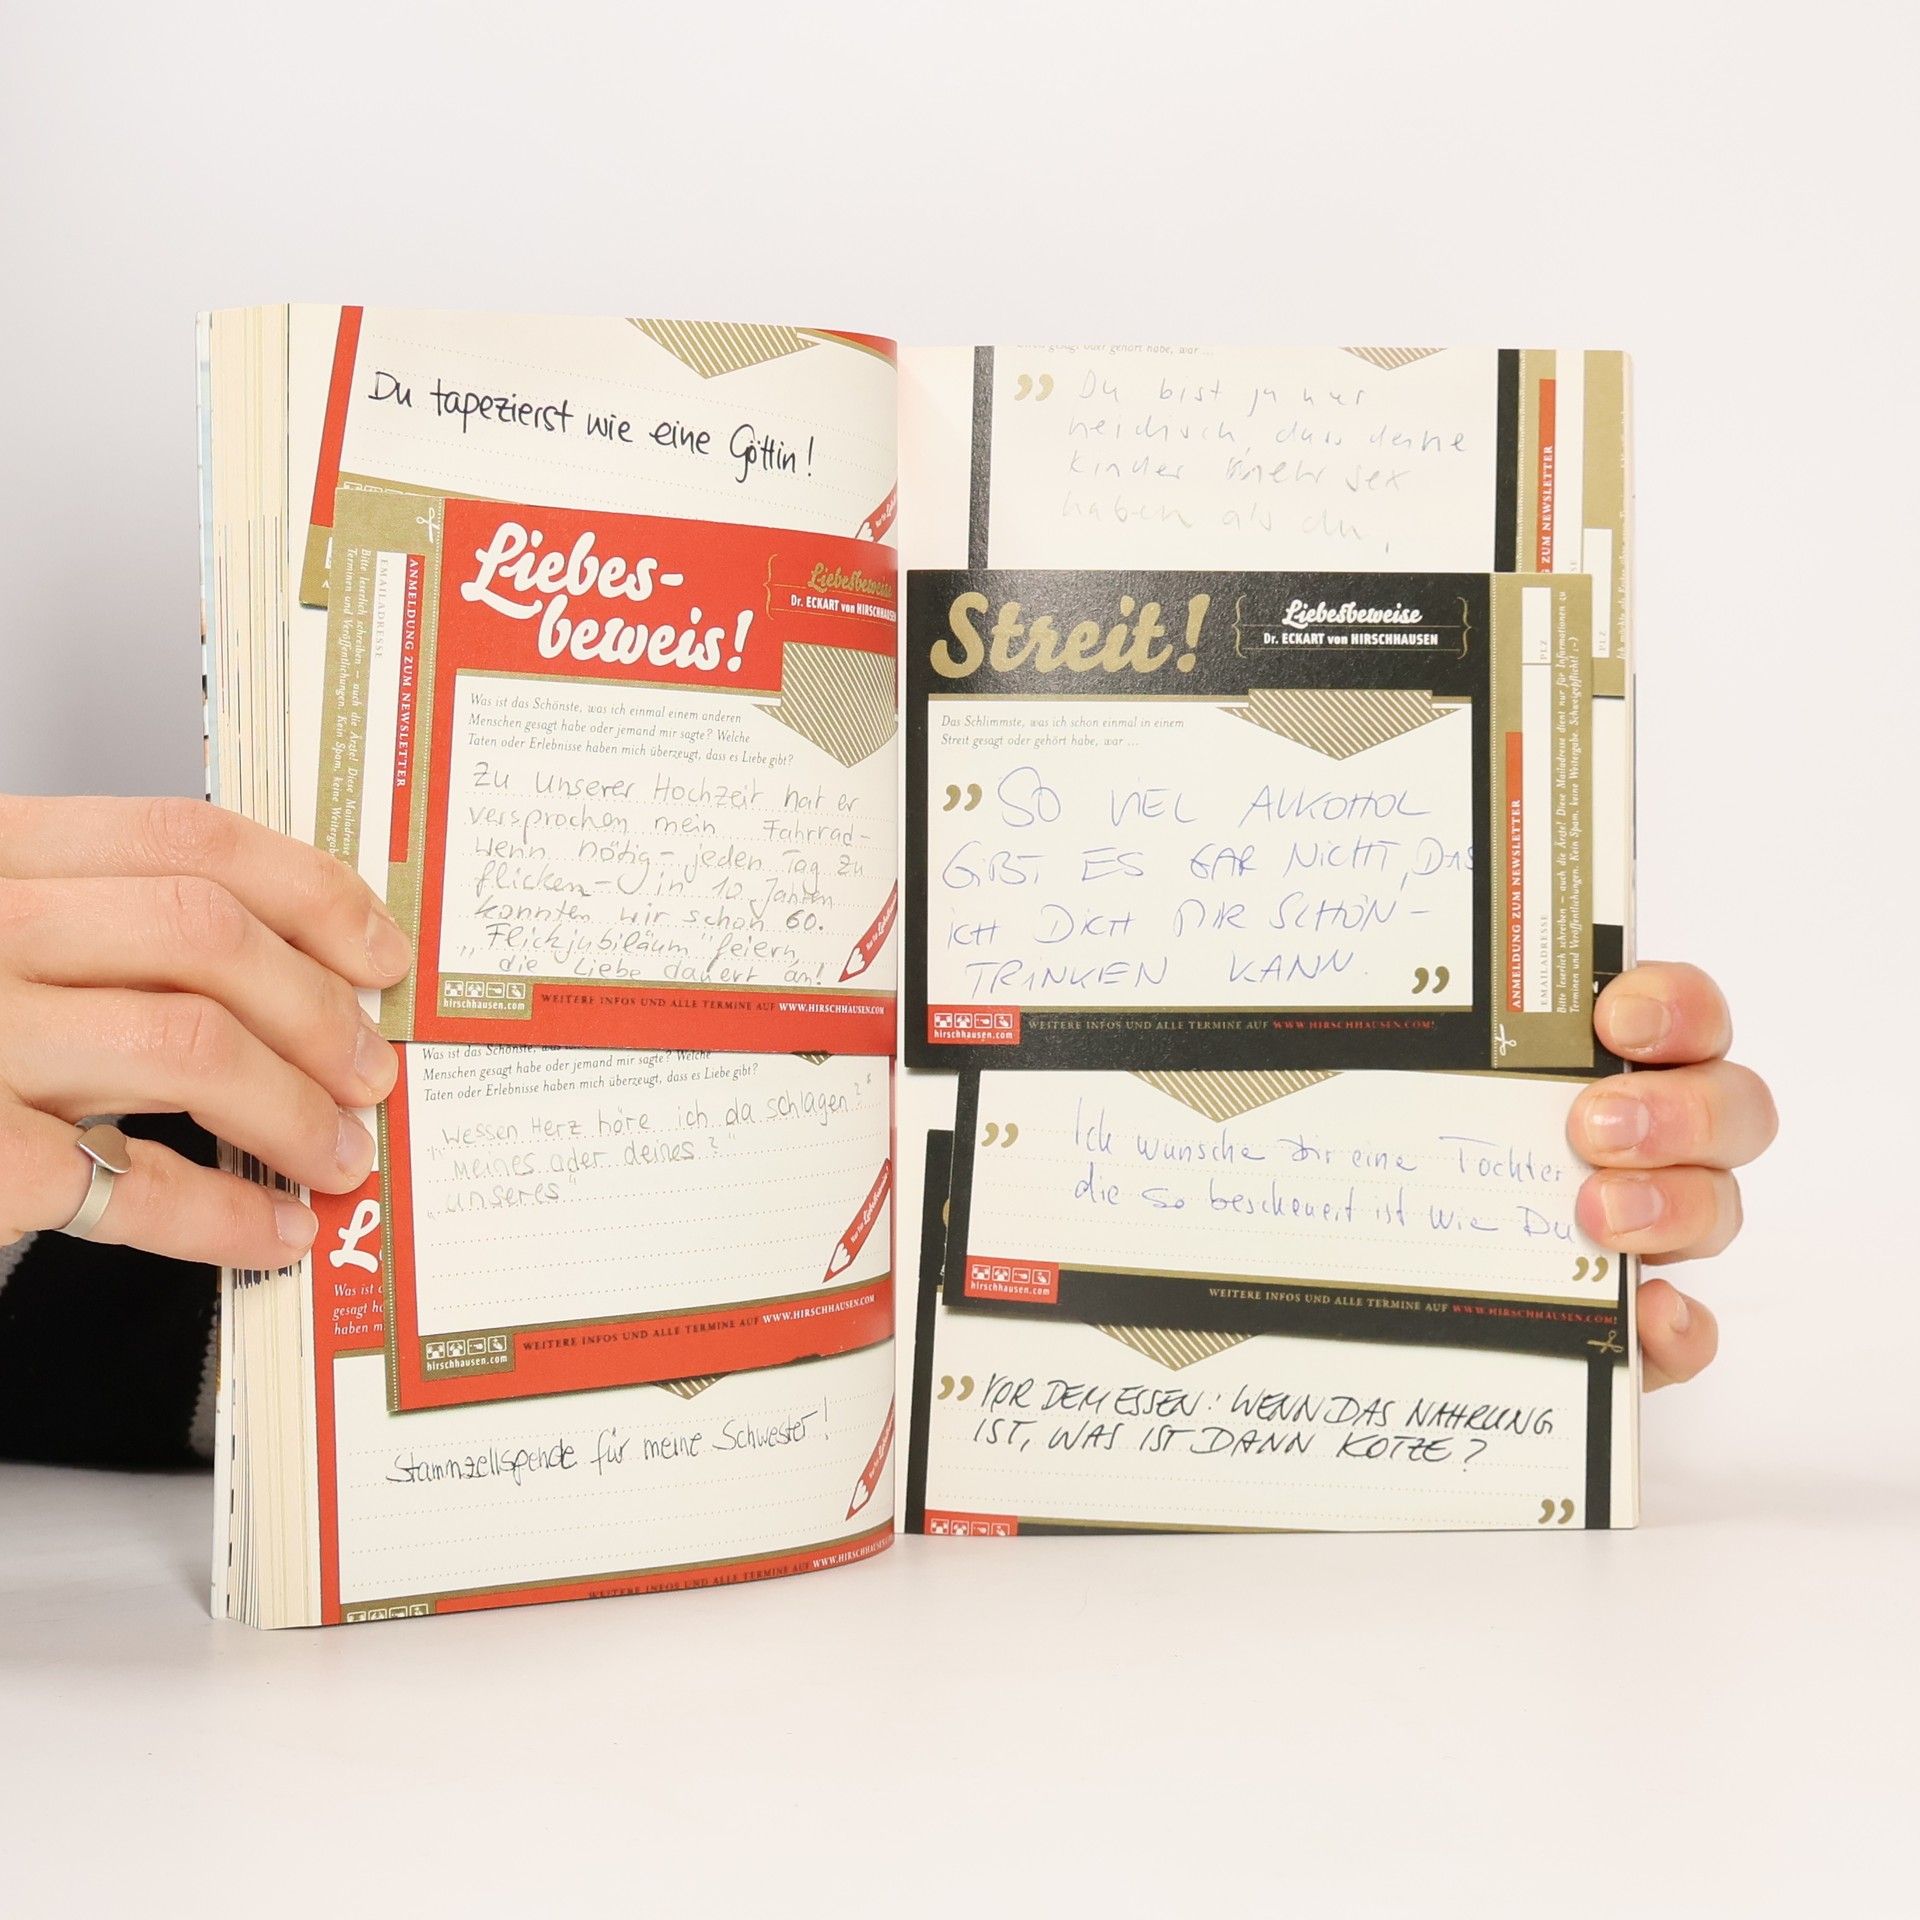 Du tapezierst wie eine Göttin!
Liebes-
beweis!
Liebesbeweise
Dr. ECKART von HIRSCHHAUSEN
ANMELDUNG ZUM NEWSLETTER
EMAILADRESSE
Bitte leserlich schreiben – auch die Ärzte! Diese Mailadresse
Terminen und Veröffentlichungen. Kein Spam, keine Weitergabe
Was ist das Schönste, was ich einmal einem anderen
Menschen gesagt habe oder jemand mir sagte? Welche
Taten oder Erlebnisse haben mich überzeugt, dass es Liebe gibt?
Zu unserer Hochzeit hat er
versprochen mein Fahrrad-
wenn nötig- jeden Tag zu
flicken- in 10 Jahren
konnten wir schon 60.
„Flickjubiläum" feiern,
die Liebe dauert an!
hirschhausen.com
WEITERE INFOS UND ALLE TERMINE AUF WWW.HIRSCHHAUSEN.COM
Was ist das Schönste, was
Menschen gesagt habe oder jemand mir sagte? Welche
Taten oder Erlebnisse haben mich überzeugt, dass es Liebe gibt?
„Wessen Herz höre ich da schlagen?
meines oder deines?"
„unseres"
hirschhausen.com
WEITERE INFOS UND ALLE TERMINE AUF WWW.HIRSCHHAUSEN.COM
Was ist
gesagt
haben
Stammzellspende für meine Schwester!
WEITERE INFOS UND ALLE TERMINE AUF WWW.HIRSCHHAUSEN
Streit gesagt oder gehört habe, war ...
” Du bist ja nur
neidisch, dass deine
Kinder mehr sex
haben als du,
ZUM NEWSLETTER
PLZ
Streit!
Liebesbeweise
Dr. ECKART von HIRSCHHAUSEN
Das Schlimmste, was ich schon einmal in einem
Streit gesagt oder gehört habe, war ...
” SO VIEL ALKOHOL
GIBT ES GAR NICHT, DAS
ICH DICH MIR SCHÖN-
TRINKEN KANN. ”
hirschhausen.com
WEITERE INFOS UND ALLE TERMINE AUF WWW.HIRSCHHAUSEN.COM!
ANMELDUNG ZUM NEWSLETTER
EMAILADRESSE
PLZ
Bitte leserlich schreiben – auch die Ärzte! Diese Mailadresse dient nur für Informationen zu
Terminen und Veröffentlichungen. Kein Spam, keine Weitergabe. Schweigepflicht! ;-)
” Ich wünsche Dir eine Tochter
die so bescheuert ist wie Du ”
hirschhausen.com
WEITERE INFOS UND ALLE TERMINE AUF WWW.HIRSCHHAUSEN.COM!
” VOR DEM ESSEN: WENN DAS NAHRUNG
IST, WAS IST DANN KOTZE? ”